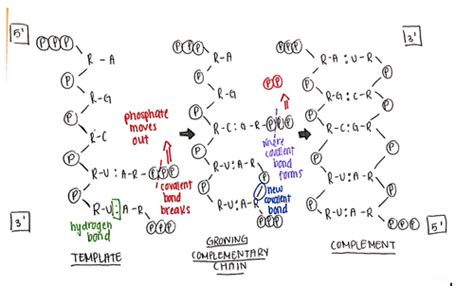 5'
3'
PPP
R-A
P
R-G
P
R-C
P
R-U:A-R-PPP
P
R-U:A-R
PPP
3'
hydrogen
bond
TEMPLATE
phosphate
moves
out
covalent
bond
breaks
PPP
R-A
P
R-G
P
R-C:G-R-PPP
P
R-U:A-R
P
P
R-U:A-R
PPP
PP
where
covalent
bond
forms
new
covalent
bond
GROWING
COMPLEMENTARY
CHAIN
PPP
R-A:U-R
P
P
R-G:C-R
P
P
R-C:G-R
P
P
R-U:A-R
P
P
R-U:A-R
PPP
5'
COMPLEMENT